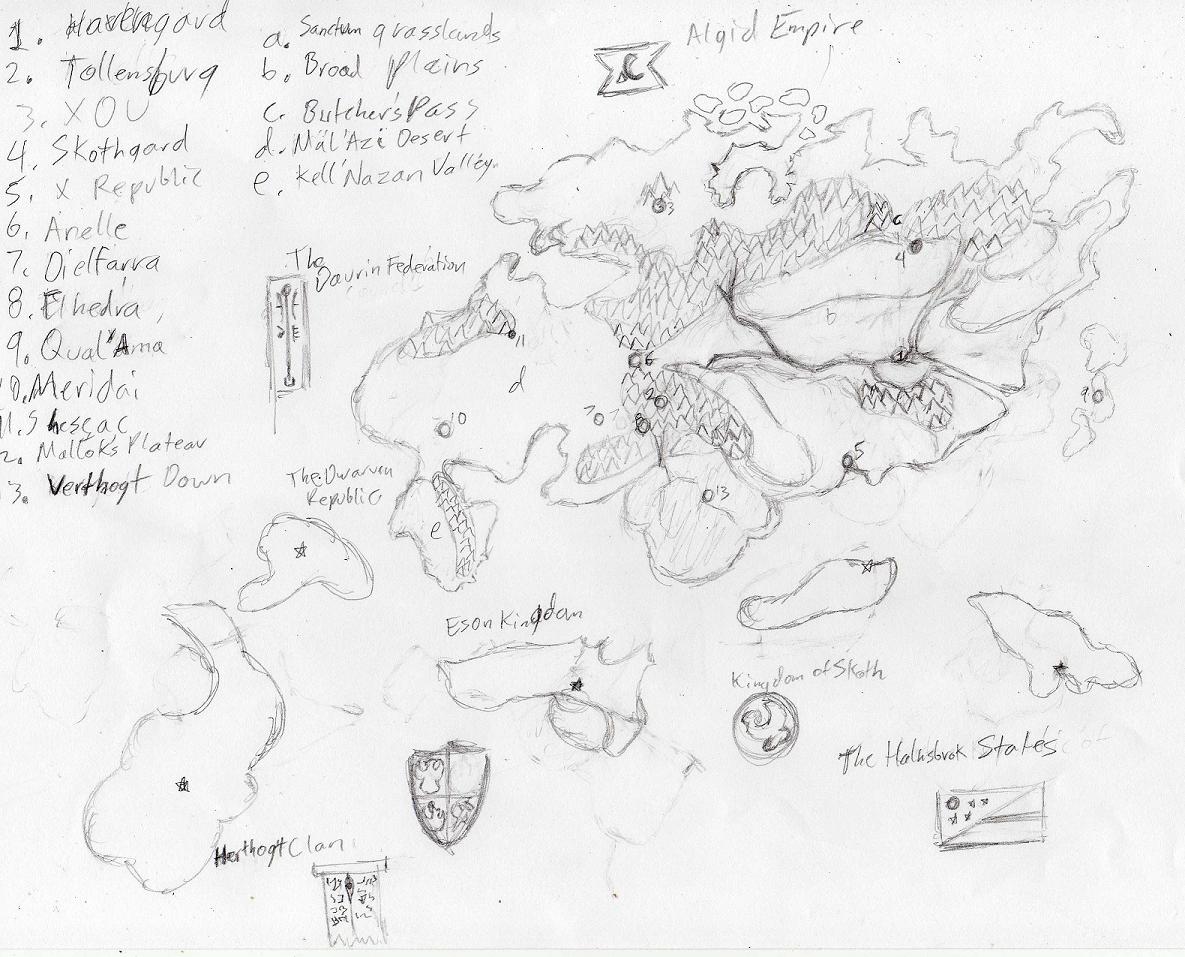 1. Havengard
2. Tollensburg
3. XOU
4. Skothgard
5. X Republic
6. Anelle
7. Dielfarra
8. Elhedra
9. Qual'Ama
10. Meridai
11. Shescac
2. Malloks Plateau
3. Verthogt Down
a. Sanctum grasslands
b. Broad Plains
c. Butcher's Pass
d. Mal'Azi Desert
e. Kell'Nazan Valley
Algid Empire
C
3
c
4
b
11
6
1
d
2
7
8
9
10
5
13
e
The
Daurin Federation
The Dwarven
Republic
Eson Kingdom
Kingdom of Skoth
The Halmsbrok States
Herthogt Clan